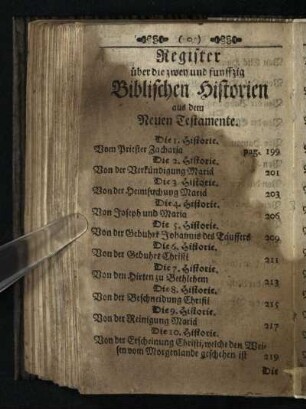 Register
über die zwey und funffzig
Biblischen Historien
aus dem
Neuen Testamente.
Die 1. Historie.
Vom Priester Zacharia pag. 199
Die 2. Historie.
Von der Verkündigung Mariä 201
Die 3. Historie.
Von der Heimsuchung Mariä 203
Die 4. Historie.
Von Joseph und Maria 206
Die 5. Historie.
Von der Gebuhrt Johannis des Täuffers 209
Die 6. Historie.
Von der Gebuhrt Christi 211
Die 7. Historie.
Von den Hirten zu Bethlehem 213
Die 8. Historie.
Von der Beschneidung Christi 215
Die 9. Historie.
Von der Reinigung Mariä 217
Die 10. Historie.
Von der Erscheinung Christi, welche den Wei-
sen vom Morgenlande geschehen ist 219
Die